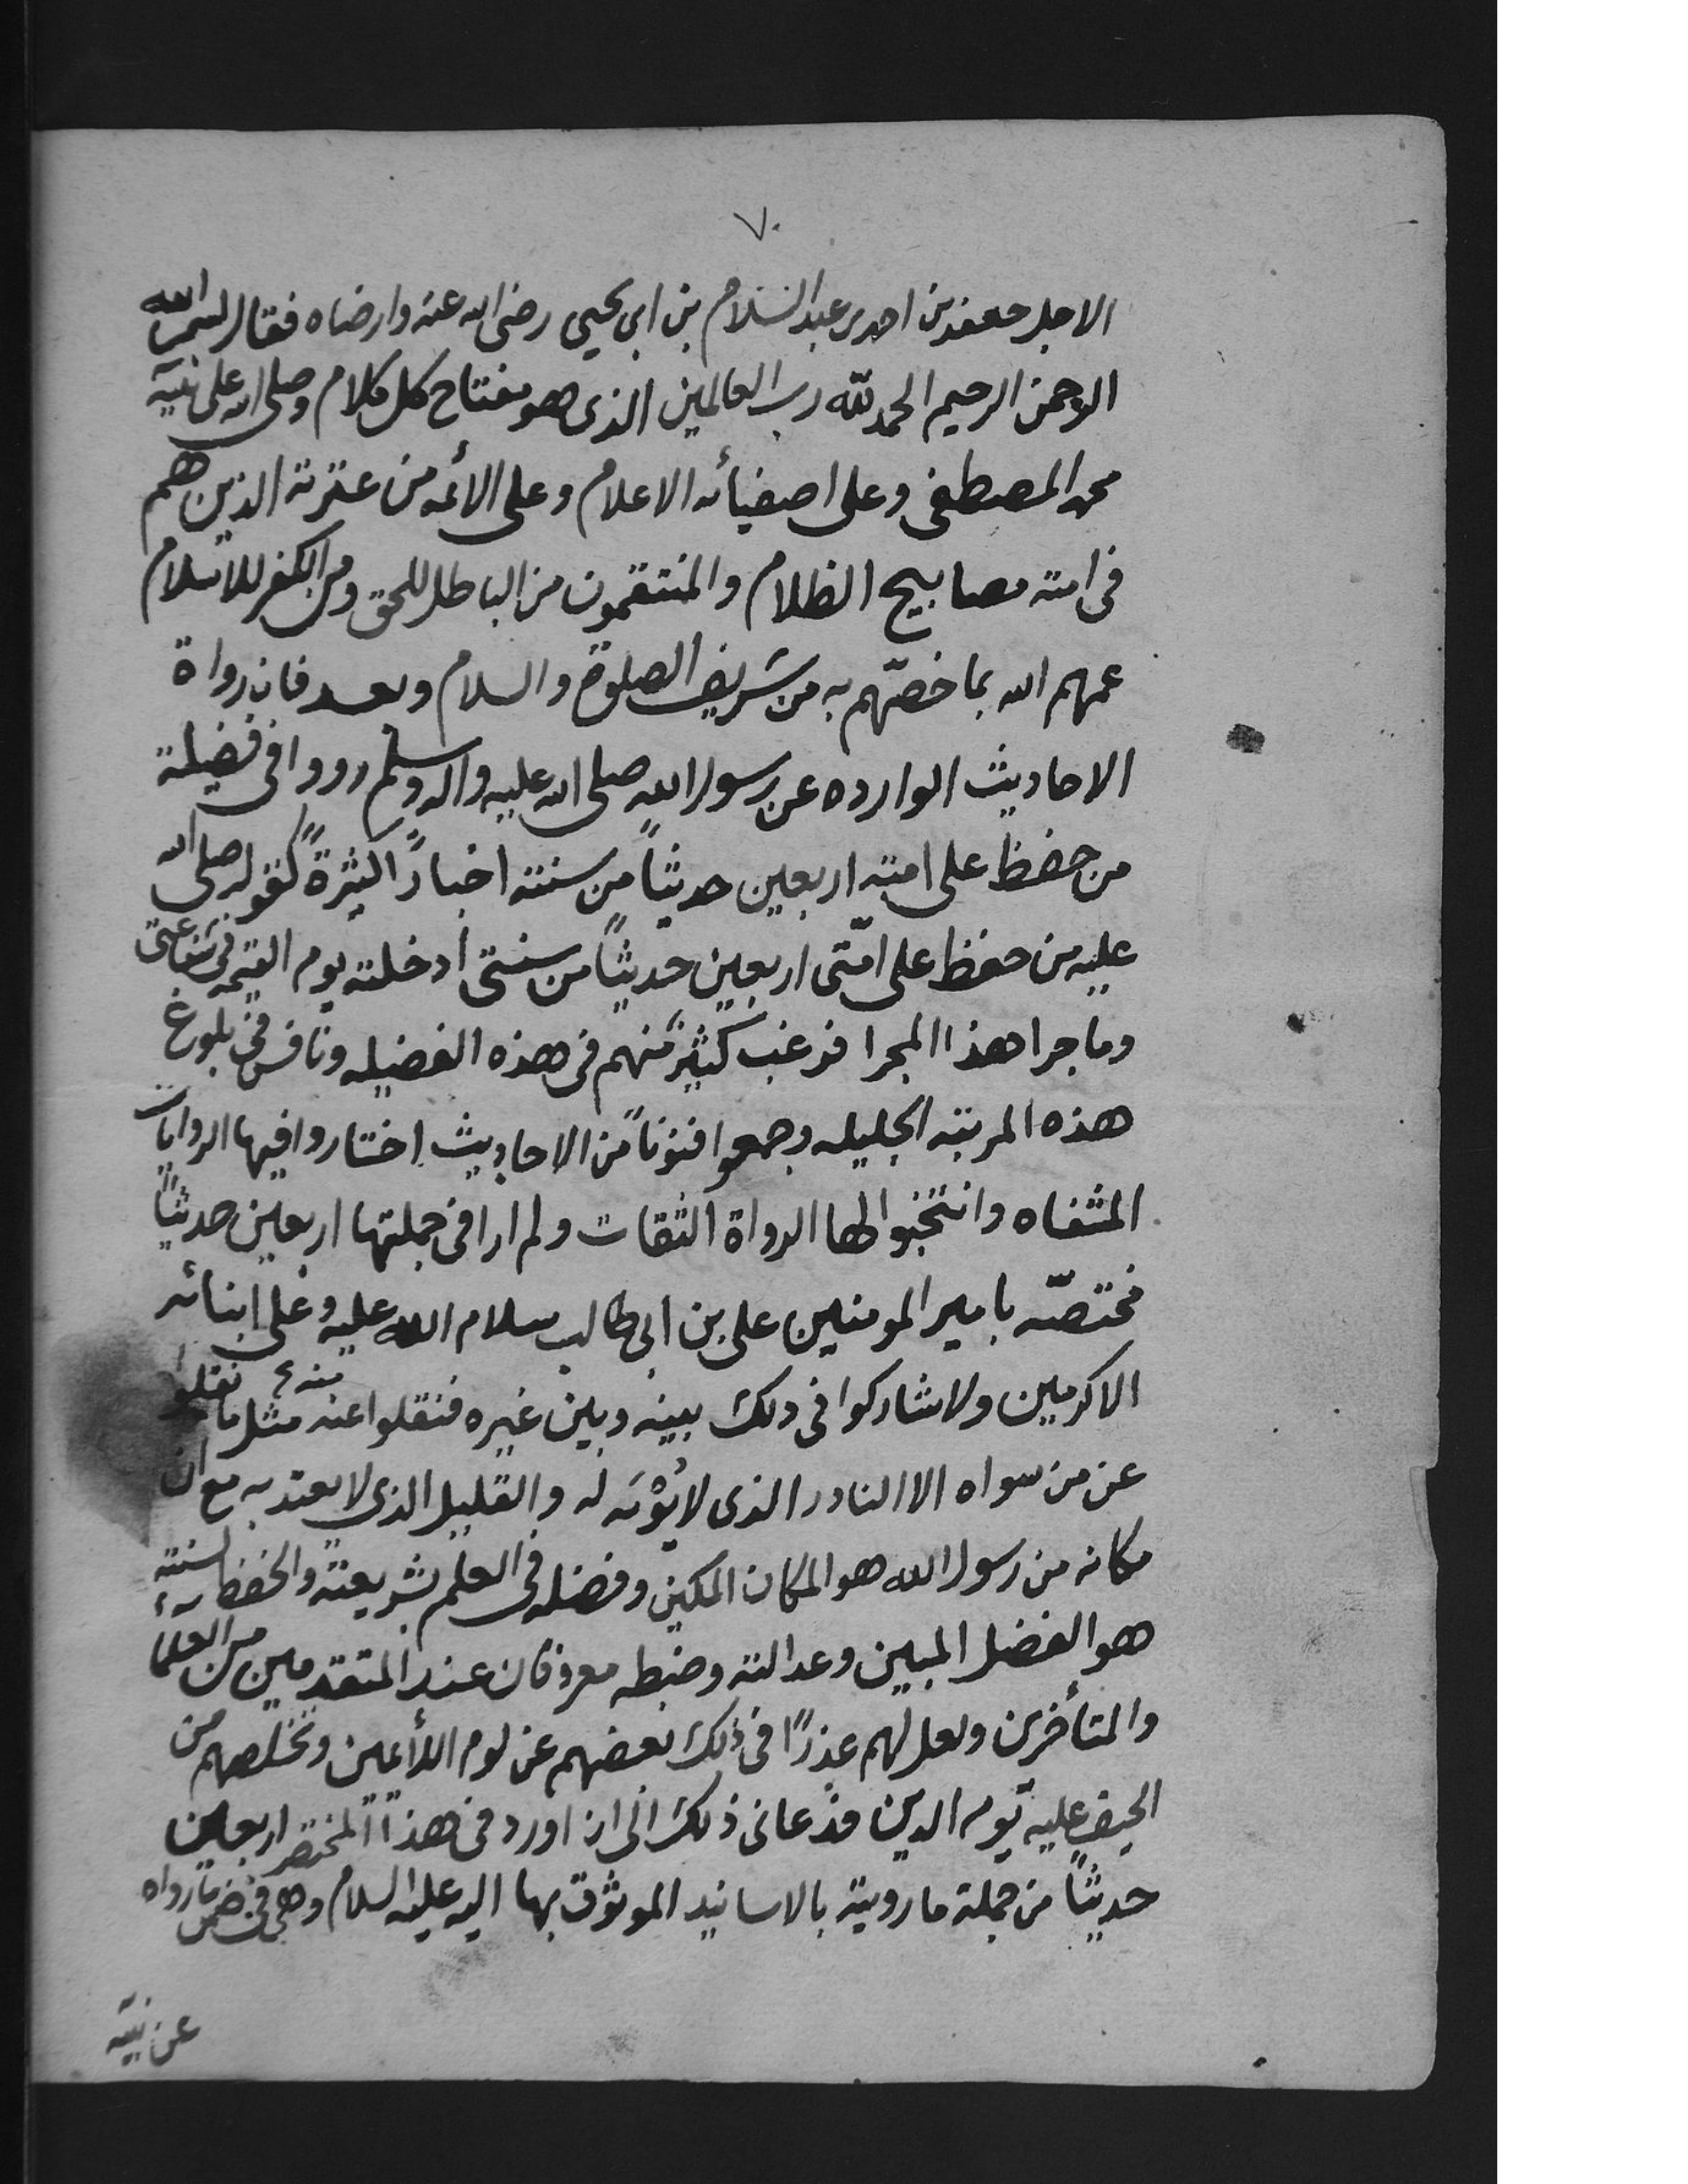 ٧٠
الاجل جعفر بن احمد بن عبد السلام بن ابى يحيى رضى الله عنه وارضاه فقال بسم الله
الرحمن الرحيم الحمد لله رب العالمين الذى هو مفتاح كل كلام وصلى الله على نبيّه
محمد المصطفى وعلى اصفيائه الاعلام وعلى الأئمه من عترته الذين هم
فى امته مصابيح الظلام والمنتقمون من الباطل للحق ومن الكفر للاسلام
عمهم الله بما خصّهم به من شريف الصلوة والسلام وبعد فان رواة
الاحاديث الوارده عن رسول الله صلى الله عليه واله وسلم رووا فى فضيلة
من حفظ على امته اربعين حديثاً من سنته اخباراً كثيرةً كقوله صلى الله
عليه من حفظ على امّتى اربعين حديثاً من سنتى ادخلته يوم القيمه فى شفاعتى
وما جرا هذا المجرا فرغب كثير منهم فى هذه الفضيله ونافس فى بلوغ
هذه المرتبة الجليله وجمعوا فنوناً من الاحاديث اختاروا فيها الروايات
المشفاه وانتخبوا لها الرواة الثقات ولم ار فى جملتها اربعين حديثاً
مختصّه بامير المومنين على بن ابى طالب سلام الله عليه وعلى ابنائه
الاكرمين ولا شاركوا فى ذلك بينه وبين غيره فنقلوا عنه مثل ما نقلوا
عن من سواه الا النادر الذى لا يؤبه له والقليل الذى لا يعتد به مع ان
مكانه من رسول الله هو المكان المكين وفضله فى العلم بشريعته والحفظ لسنته
هو الفضل المبين وعدالته وضبطه معروفان عند المتقدمين من العلماء
والمتأخرين ولعل لهم عذرًا فى ذلك بعضهم عن لوم اللائمين وتخلصهم من
الحيف عليه يوم الدين فدعانى ذلك الى ان اورد فى هذا المختصر اربعين
حديثاً من جملة ما رويته بالاسانيد الموثوق بها اليه عليه السلام وهى فى ضمن ما رواه
عن نبيّه